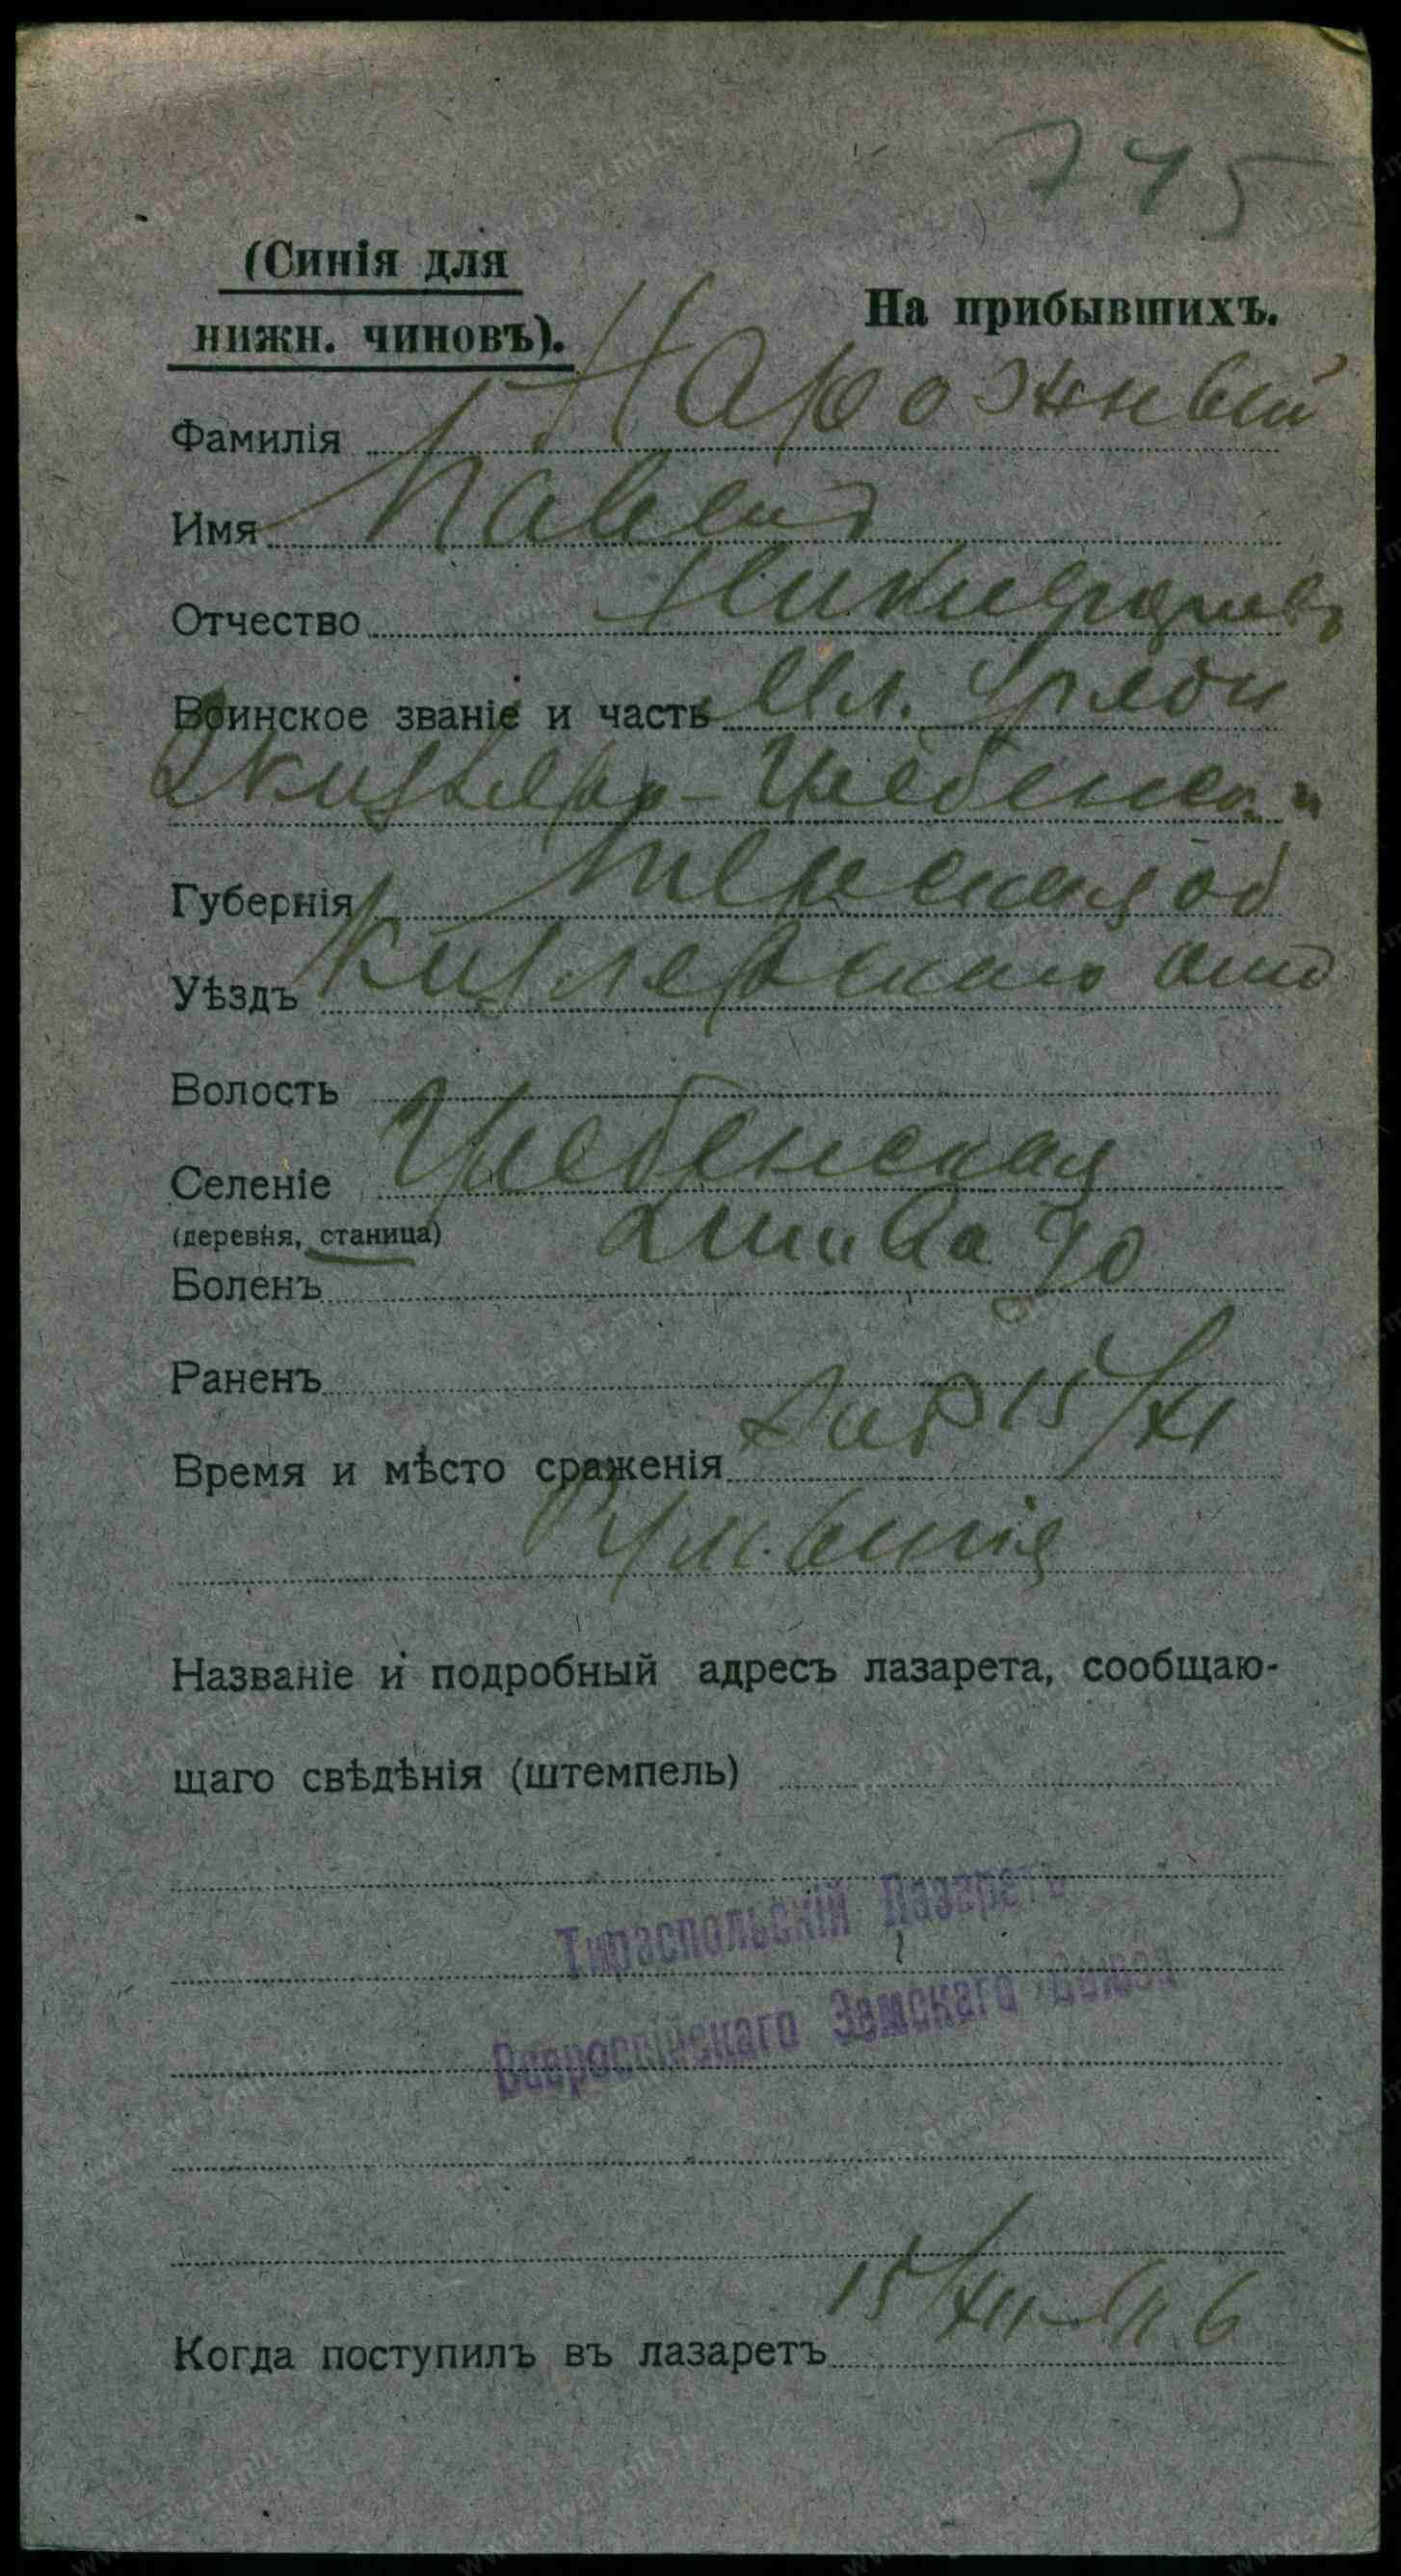 745
(Синія для
нижн. чиновъ).
На прибывшихъ.
Фамилія Нарожный
Имя Павелъ
Отчество
Воинское званіе и часть Мл. Уряди
Кизляро-Гребенск
Губернія Терская об
Уѣздъ Кизлярскаго отд
Волость
Селеніе Гребенская
(деревня, станица)
Боленъ
Раненъ
Время и мѣсто сраженія 15/XI
Румынія
Названіе и подробный адресъ лазарета, сообщаю-
щаго свѣдѣнія (штемпель)
Тираспольскій Лазаретъ
Всероссійскаго Земскаго Союза
Когда поступилъ въ лазаретъ 15/XII 116